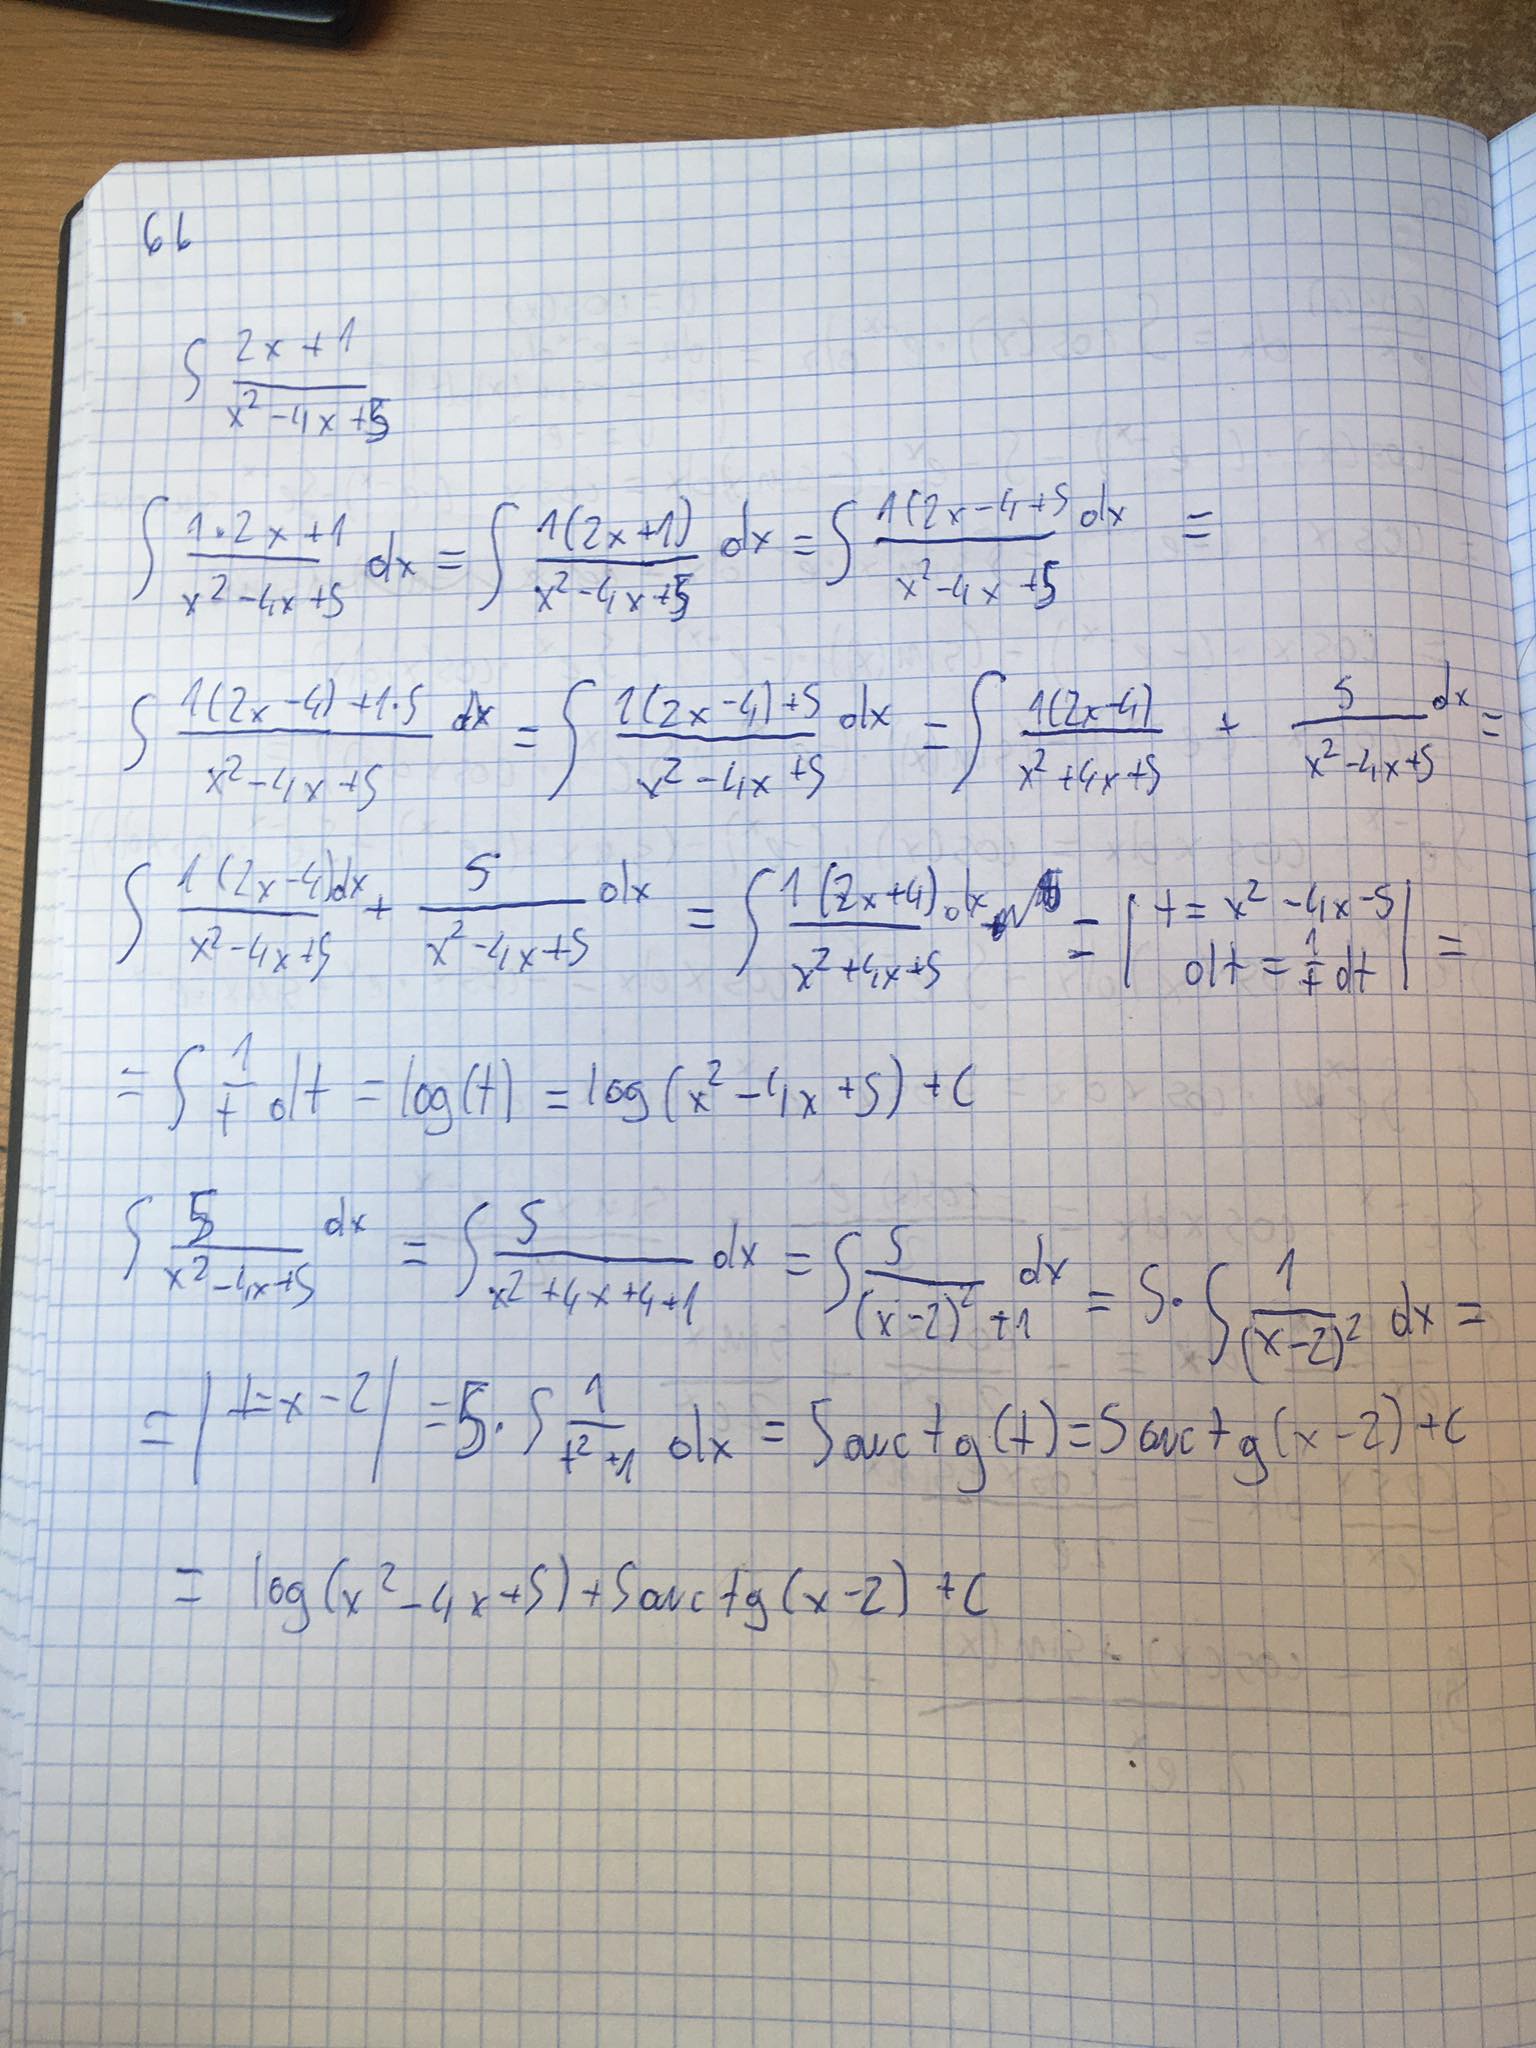 6b
∫ (2x+1)/(x²-4x+5)
∫ (1·2x+1)/(x²-4x+5) dx = ∫ (1(2x+1))/(x²-4x+5) dx = ∫ (1(2x-4+5)/(x²-4x+5) dx =
∫ (1(2x-4)+1·5)/(x²-4x+5) dx = ∫ (1(2x-4)+5)/(x²-4x+5) dx = ∫ (1(2x-4))/(x²+4x+5) + 5/(x²-4x+5) dx =
∫ (1(2x-4)dx)/(x²-4x+5) + 5/(x²-4x+5) dx = ∫ (1(2x+4))/(x²+4x+5) dx = | t = x²-4x-5
dt = 1/t dt | =
= ∫ 1/t dt = log(t) = log(x²-4x+5) +C
∫ 5/(x²-4x+5) dx = ∫ 5/(x²+4x+4+1) dx = ∫ 5/((x-2)²+1) dx = 5· ∫ 1/(x-2)² dx =
= | t=x-2 | = 5· ∫ 1/(t²+1) dx = 5arctg(t) = 5arctg(x-2) +C
= log(x²-4x+5)+5arctg(x-2) +C